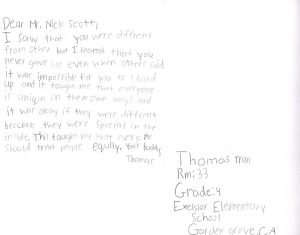 Dear Mr. Nick Scott,
I saw that you were diffrent
from other but I learned that you
never gave up even when others said
It was impossible for you to stand
up and it taught me that everyone
is unique in them own ways and
it was okay if they were diffrent
because they were special in the
inside. This taught me that everyone
should treat people eqully. Your buddy
Thomas
Thomas Tran
Rm:33
Grade:4
Excelsior Elementary
School
Garden Grove, CA